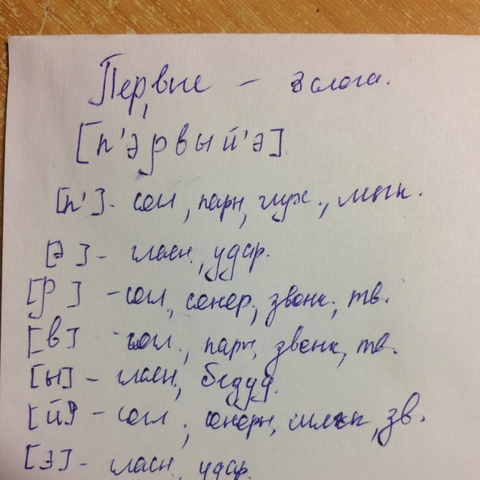 Первые - 3 слога.
[п'эрвый'э]
[п'] - согл, парн, глух., мягк.
[э] - гласн, удар.
[р] - согл, сонор, звонк, тв.
[в] согл., парн, звонк, тв.
[ы] - гласн, безуд.
[й'] - согл, сонорн, мягк, зв.
[э] - гласн, удар.